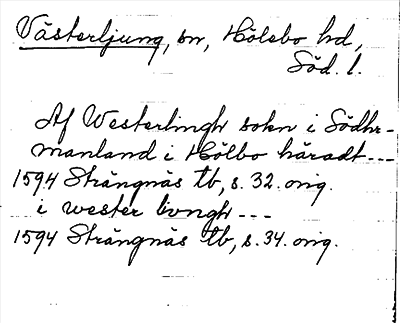 Västerljung, sn, Hölebo hd,
Söd. l.
Af Westerlingh sokn i Södhr-
manland i Hölbo häradt ---
1594 Strängnäs tb, s. 32. orig.
i wester livngh ---
1594 Strängnäs tb, s. 34. orig.